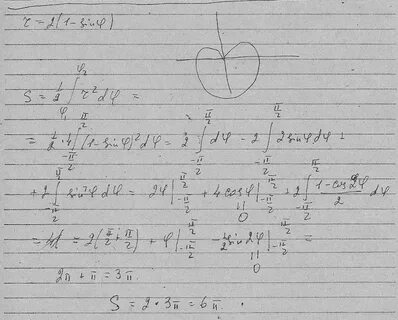 r = 2(1 - sinφ)
S = 1/2 ∫_{φ₁}^{φ₂} r² dφ =
= 1/2 · 4 ∫_{-π/2}^{π/2} (1 - sinφ)² dφ = 2 ∫_{-π/2}^{π/2} dφ - 2 ∫_{-π/2}^{π/2} 2 sinφ dφ +
+ 2 ∫_{-π/2}^{π/2} sin²φ dφ = 2φ |_{-π/2}^{π/2} + 4 cosφ |_{-π/2}^{π/2} + 2 ∫_{-π/2}^{π/2} (1 - cos2φ)/2 dφ
|| 0
= = 2(π/2 + π/2) + φ |_{-π/2}^{π/2} - sin2φ |_{-π/2}^{π/2} =
|| 0
2π + π = 3π
S = 2 · 3π = 6π.